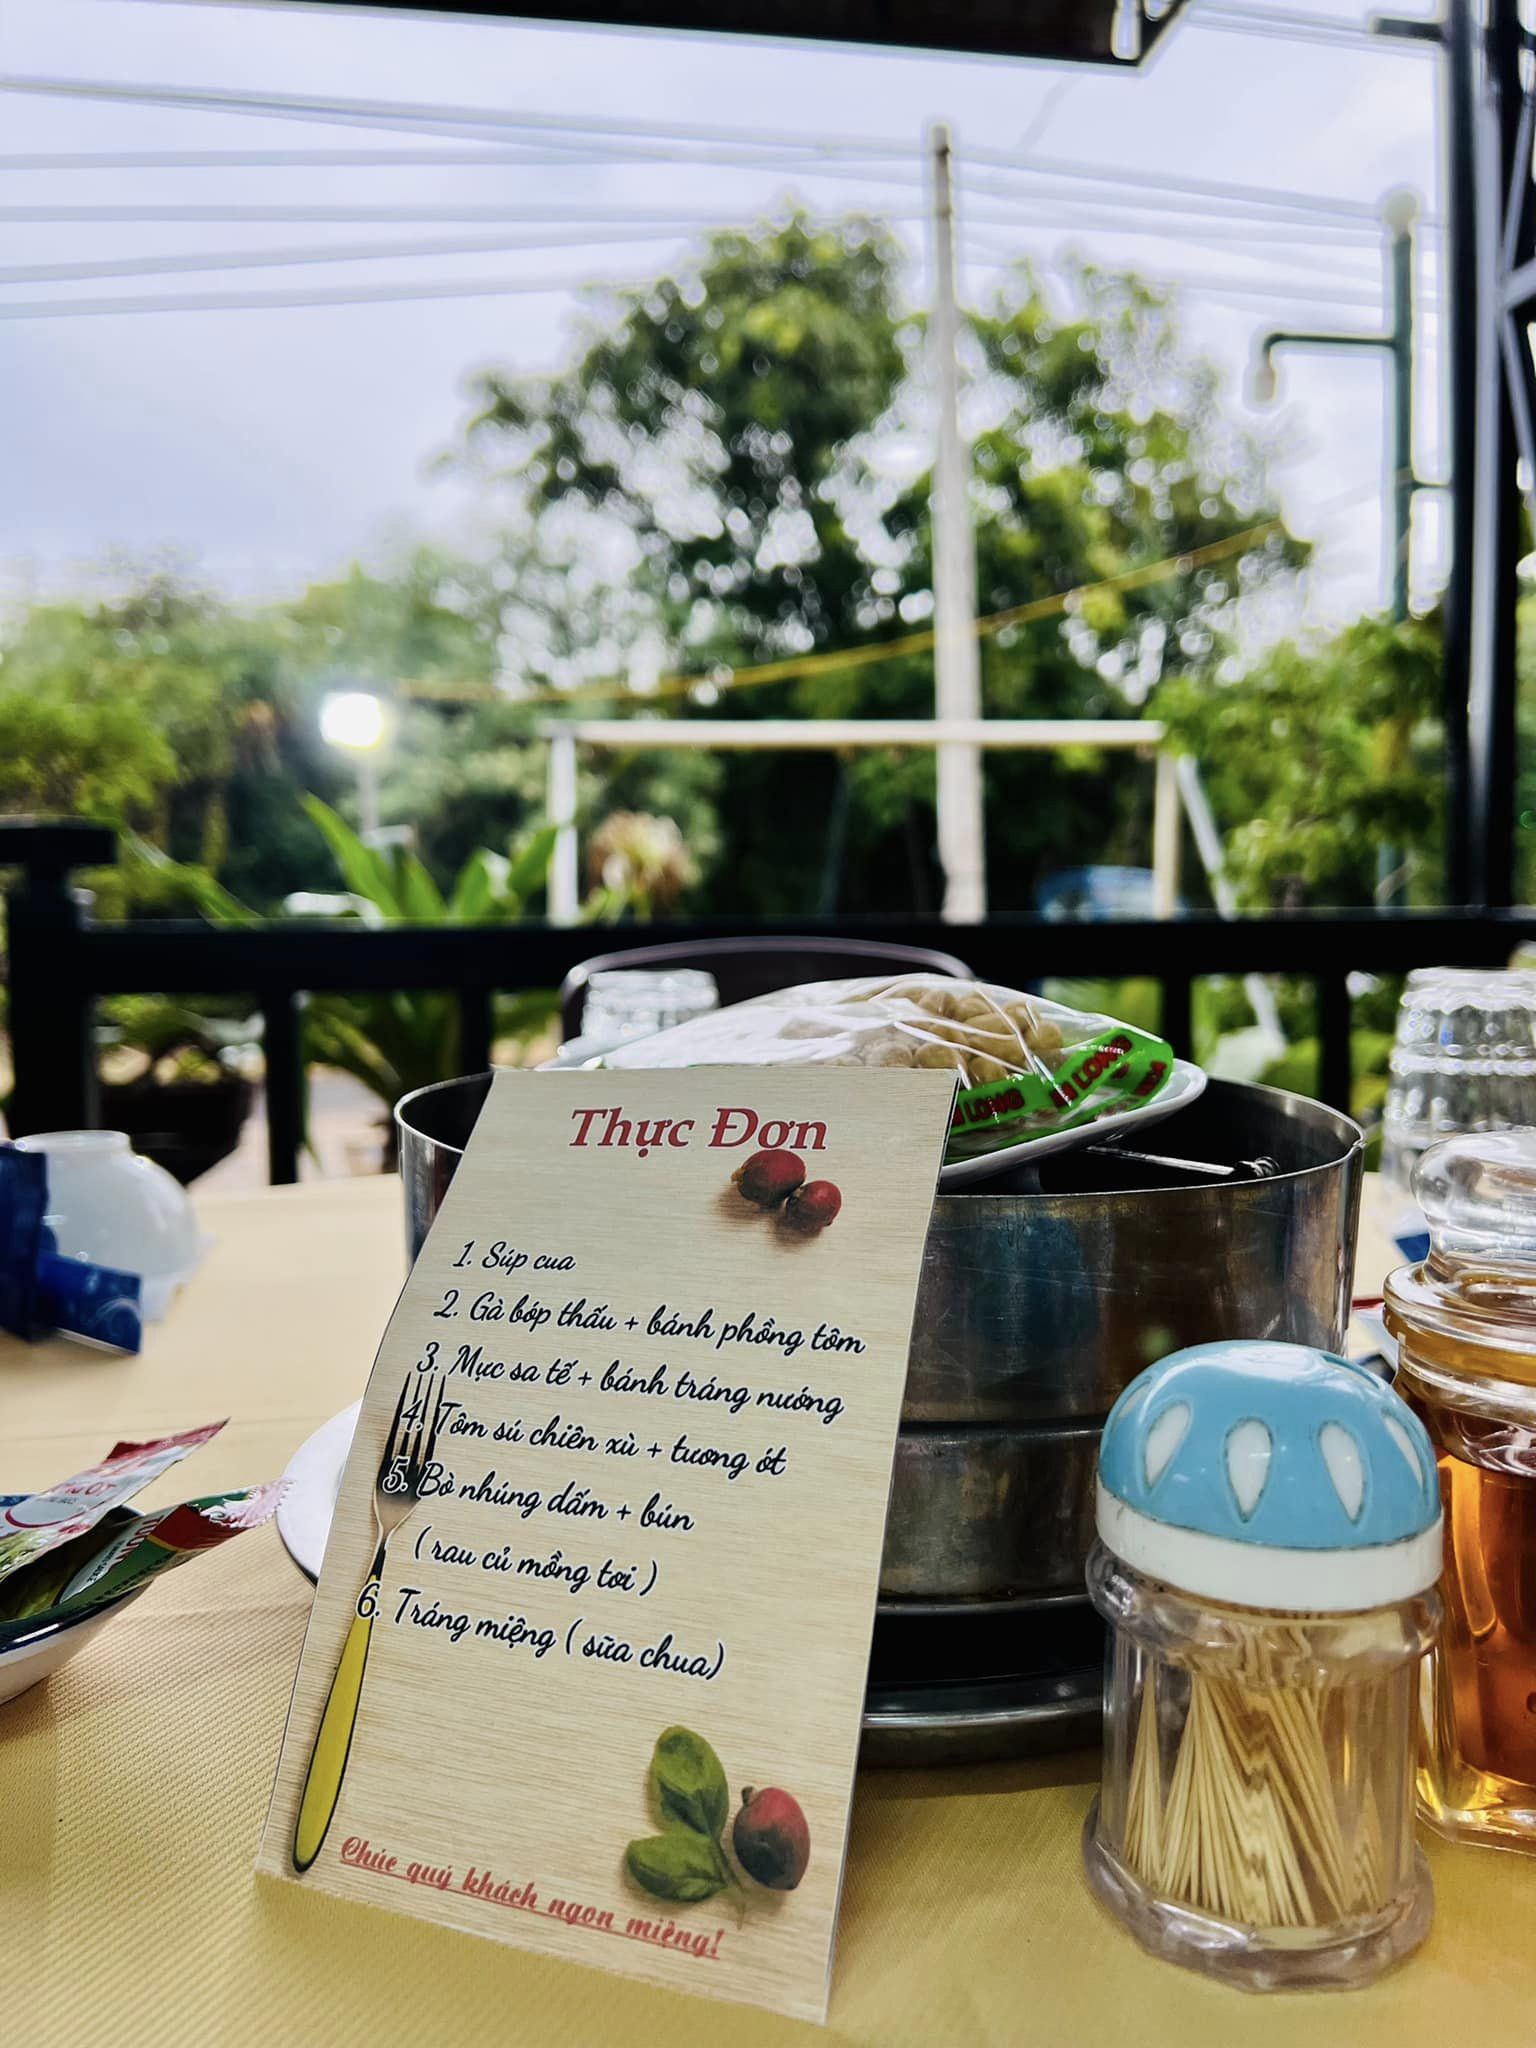 Thực Đơn
1. Súp cua
2. Gà bóp thấu + bánh phồng tôm
3. Mực sa tế + bánh tráng nướng
4. Tôm sú chiên xù + tương ớt
5. Bò nhúng dấm + bún
( rau củ mồng tơi )
6. Tráng miệng ( sữa chua)
Chúc quý khách ngon miệng!
LONG
LONG